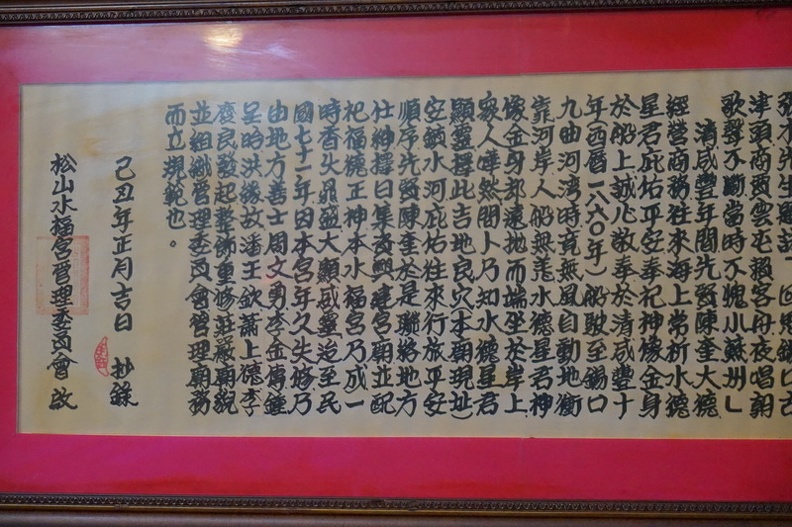 張木先生題詩「回思錫口古
津頭商賈雲屯報客舟夜唱朝
歌聲不斷當時不愧小蘇州」
清咸豐年間先賢陳奎大德
經營商務往來海上常祈水德
星君庇佑平安奉祀神像金身
於船上誠心敬奉於清咸豐十
年西曆一八六0年)船駛至錫口
九曲河灣時竟無風自動地衝
靠河岸人船無恙水德星君神
像金身却遠地而端坐於岸上
衆人嘩然問卜乃知水德星君
顯靈擇此吉地良穴(本廟現址)
安鎮水河庇佑往來行旅平安
順序先賢陳奎於是聯絡地方
仕紳擇日集資興建宮廟並配
祀福德正神本水福宮乃成一
時香火鼎盛大顯威靈迄至民
國七十一年因本宮年久失修乃
由地方善士周文勇李金傳鍾
呈昭洪緣故潘王欽蕭上德李子
廢民發起整飾重修莊嚴廟貌
並組織管理委員會管理廟務
而立規範也。
己丑年正月吉日 抄錄
松山水福宮管理委員會 啟